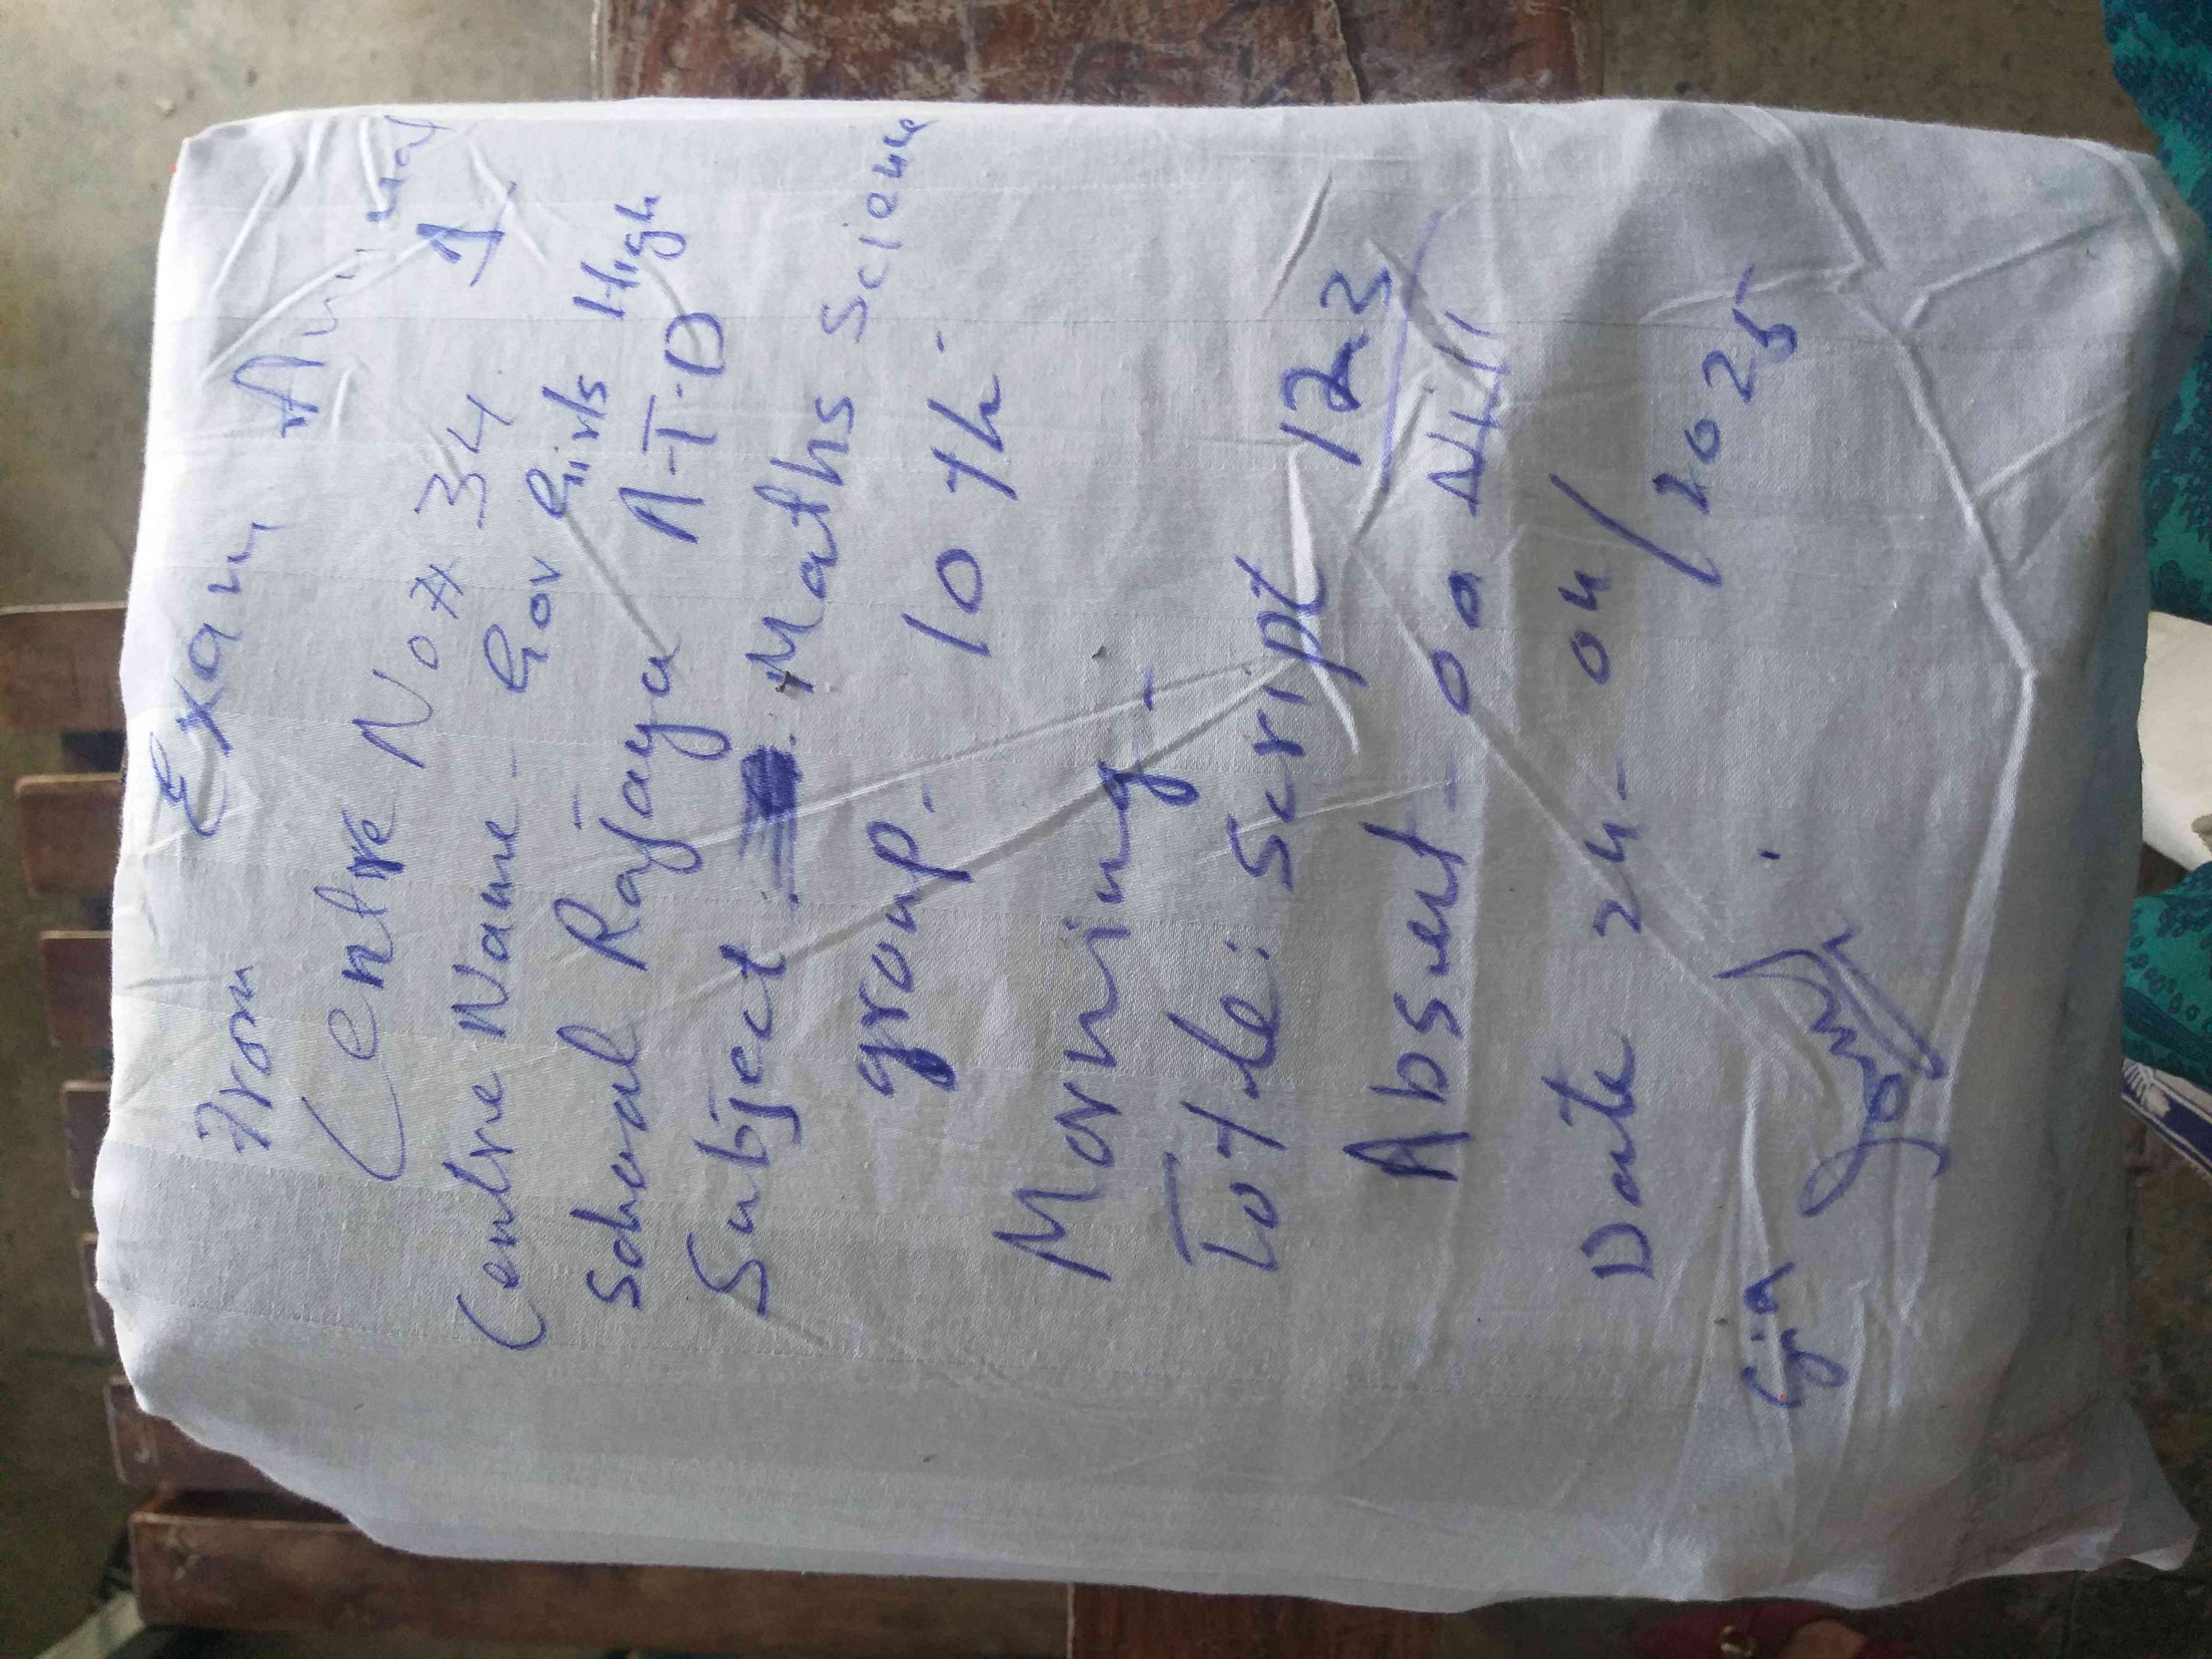 Exam Annual 1
From
Centre No # 34
Centre Name - Gov Girls High
School Rafayu A-T-D
Subject Maths Science
group - 10th -
Morning -
Totle: Script 123
Absent - 000 Nill
Date 24-04/2025